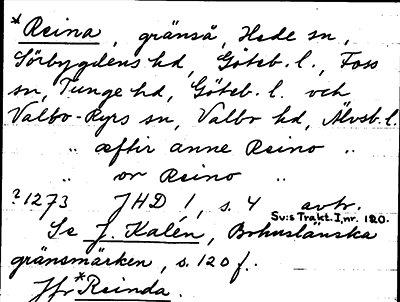 *Reina, gränså, Hede sn,
Sörbygdens hd, Göteb. l., Foss
sn, Tunge hd, Göteb. l. och
Valbo-Ryrs sn, Valbo hd, Älvsb. l.
" æftir anne Reino "
" or Reino "
?1273 JHD 1, s. 4 avtr.
Sv:s Trakt. I, nr. 120.
Se J. Kalén, Bohuslänska
gränsmärken, s. 120 f.
Jfr *Reinda.